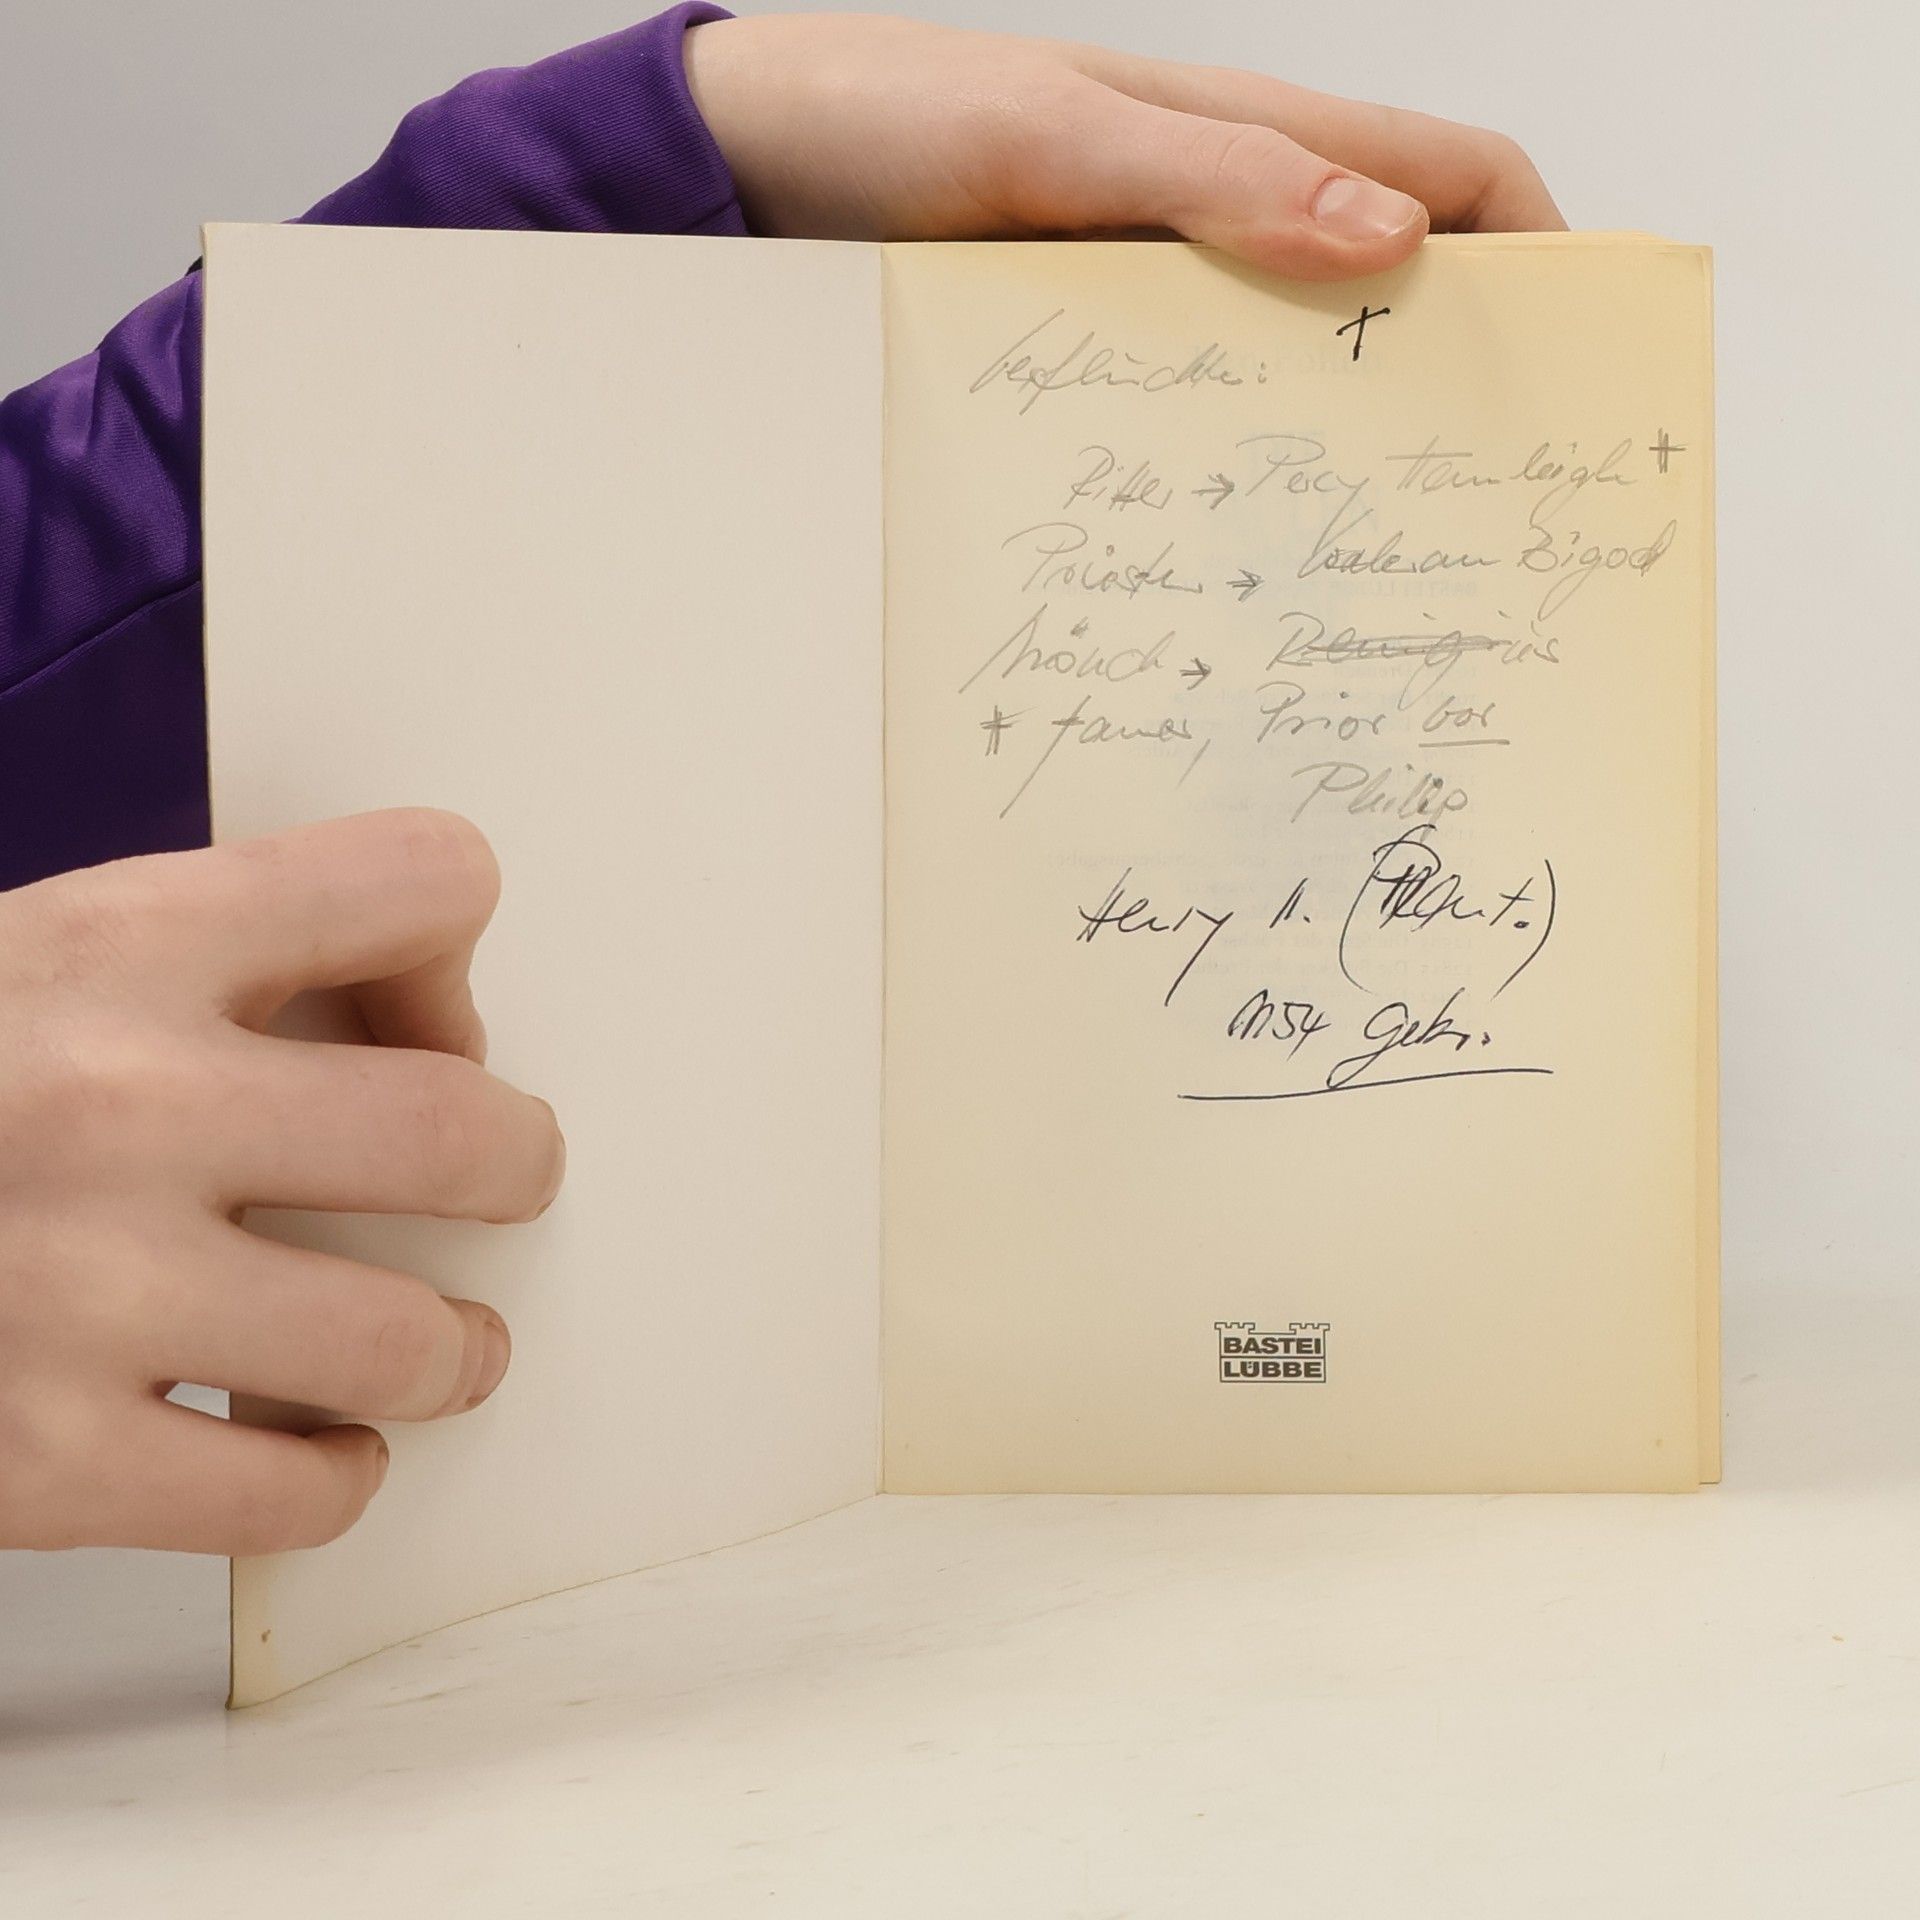 †
Verfluchte:
Ritter → Percy Hamleigh #
Priester → Waleran Bigod
Mönch → Remigius
# James, Prior vor
Philip
Henry II. (Plant.)
1154 Gekr.
BASTEI
LÜBBE